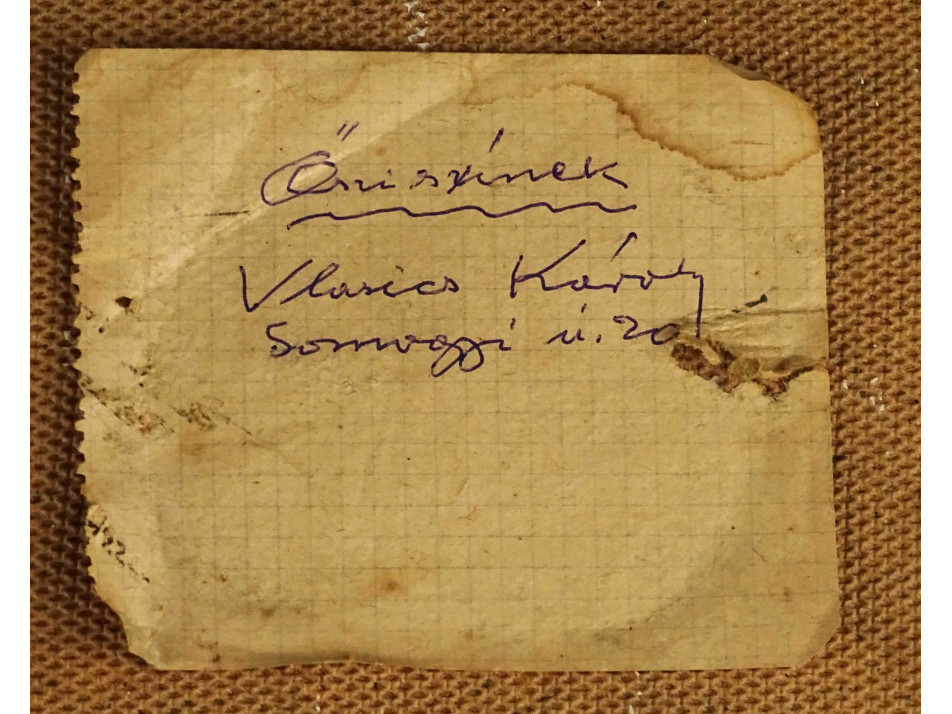 Őszi színek
Vlasics Károly
Somogyi u. 20